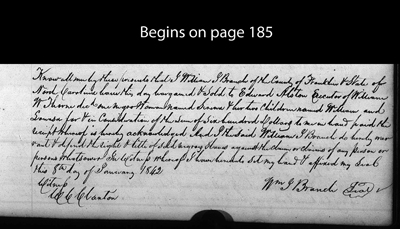 Begins on page 185
Know all men by these presents that I William J Branch of the County of Franklin & State of
North Carolina have this day bargained & sold to Edward Alston Executor of William
W Thorne decd one negro Woman named & her two children named William and
Louisa for & in Consideration of the Sum of Six hundred dollars to me in hand paid the
receipt whereof is hereby acknowledged And I the said William J Branch do hereby war
rant & defend the right & title of said negroy Slaves against the claim or claims of any person or
persons whatsoever In Witness whereof I have hereunto set my hand & affixed my Seal
this 8th day of January 1842
Witness Wm J Branch Seal
Clanton